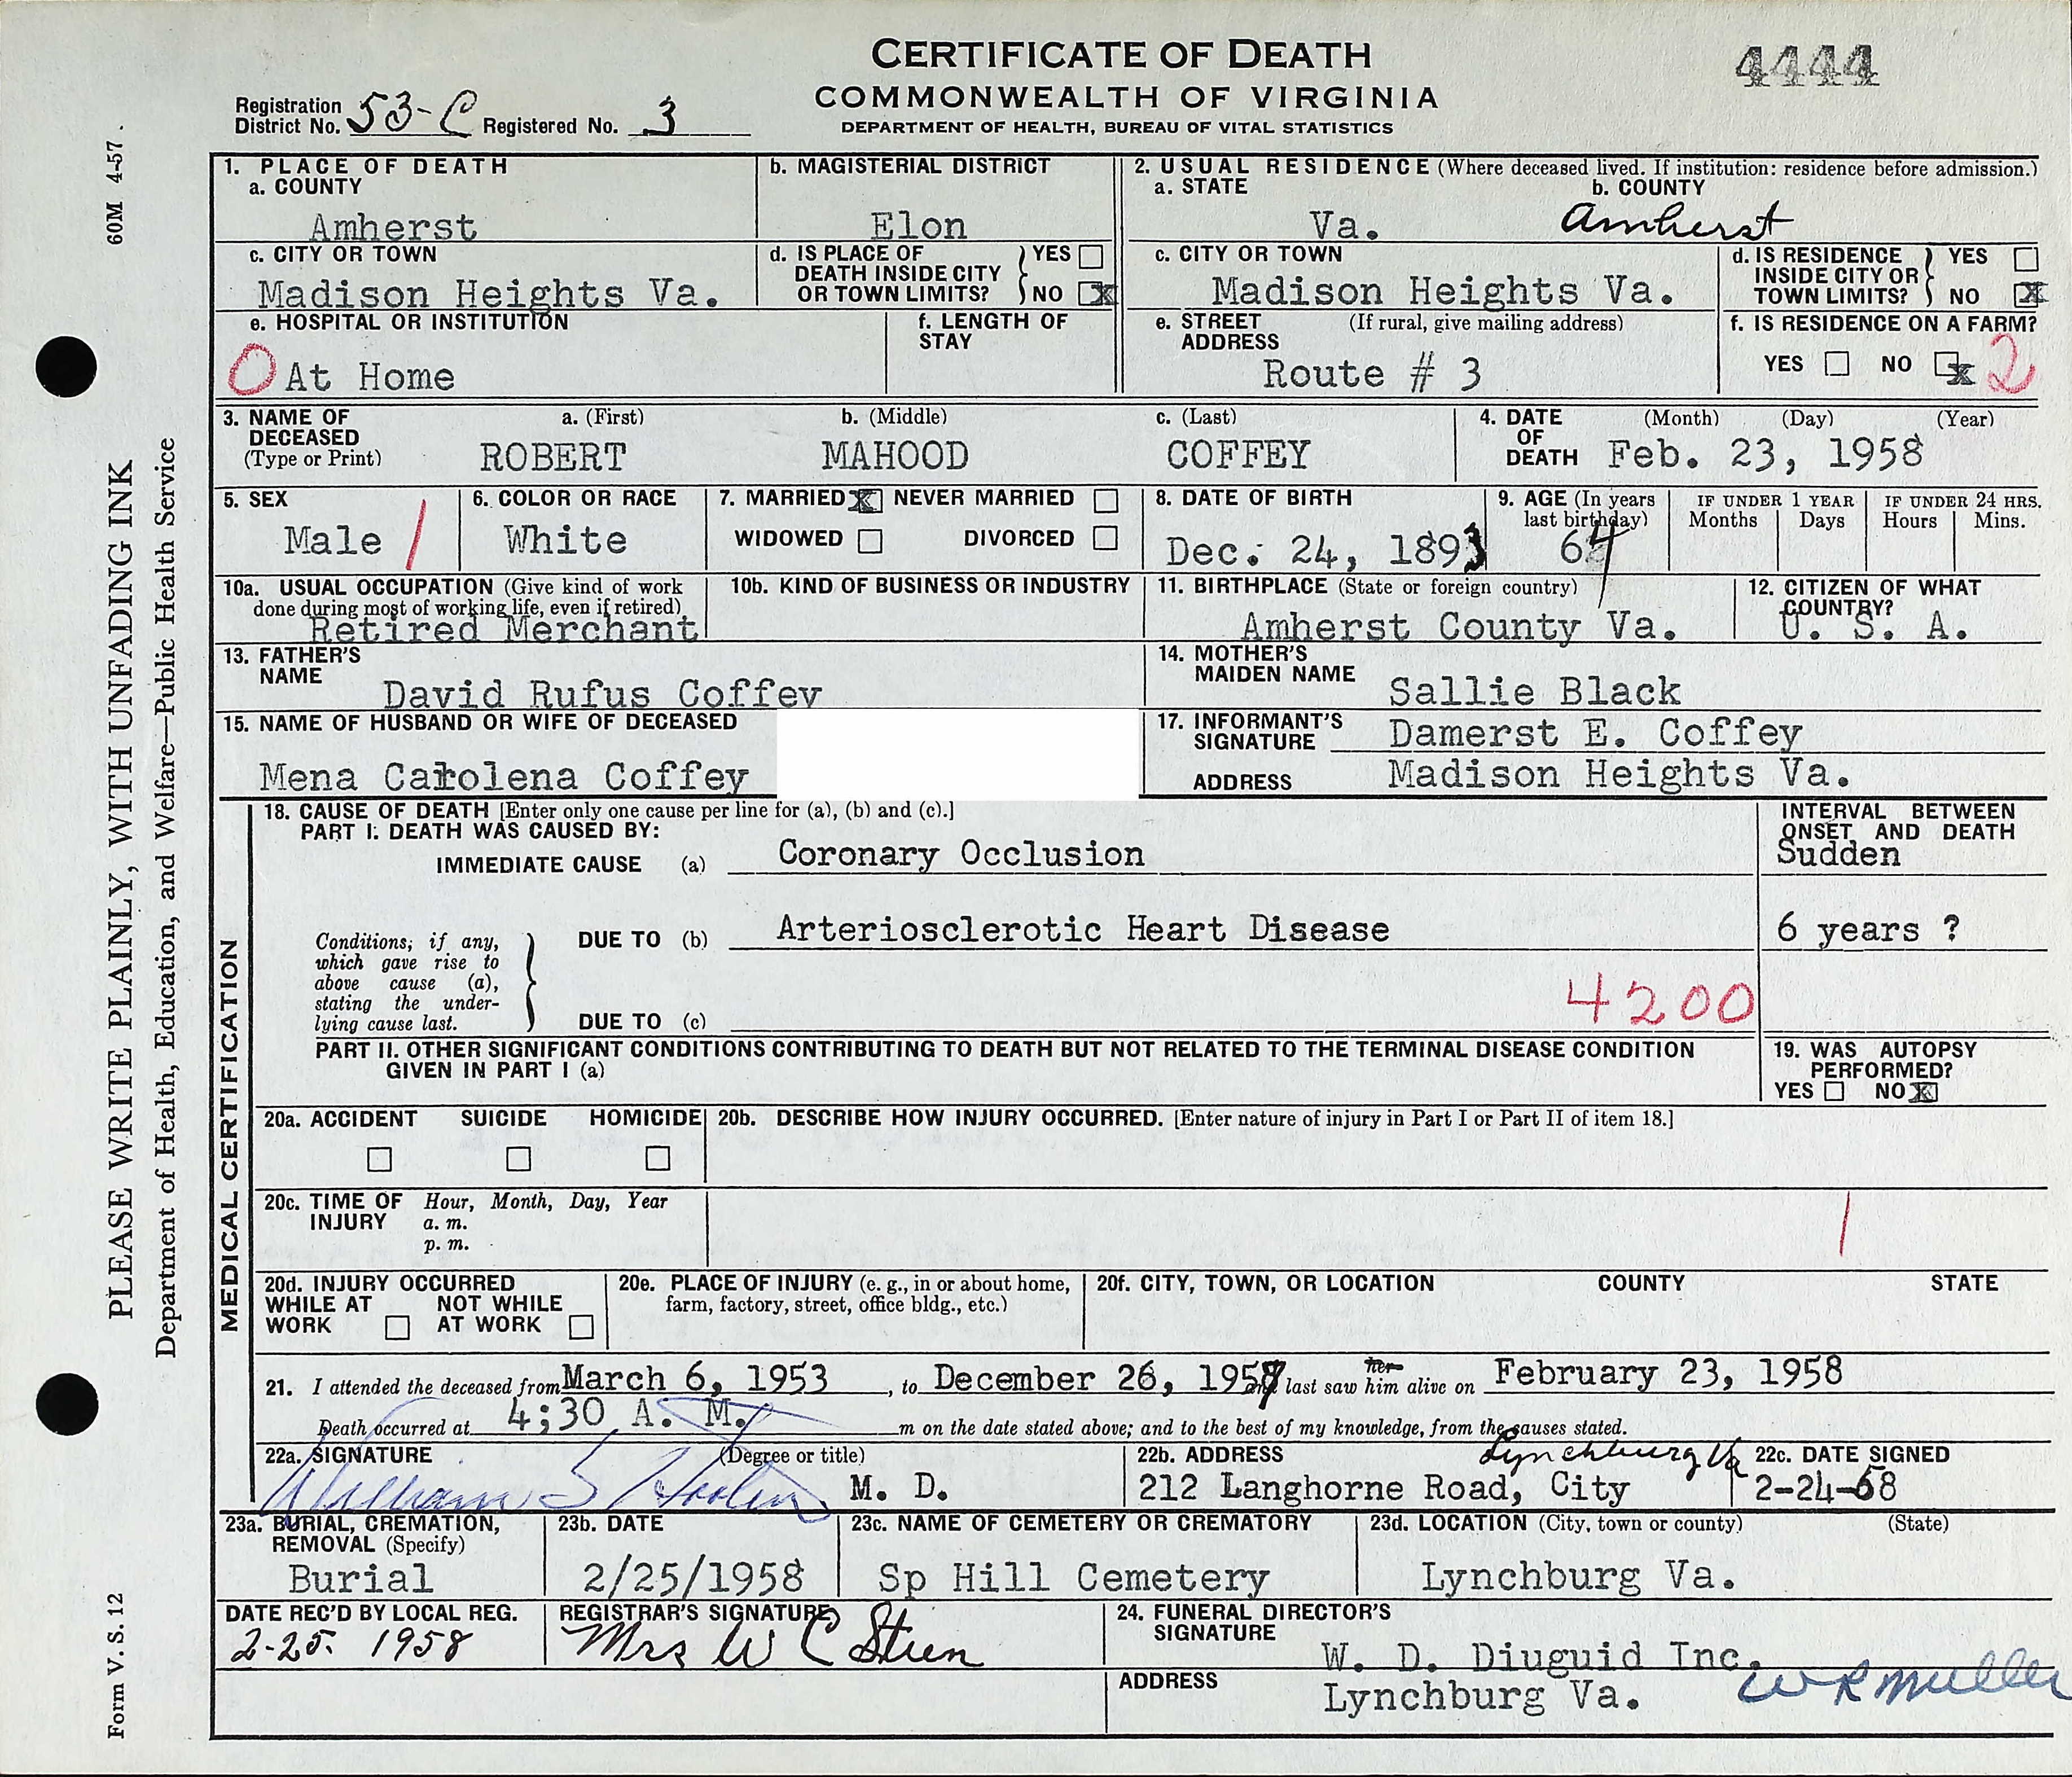 CERTIFICATE OF DEATH
COMMONWEALTH OF VIRGINIA
DEPARTMENT OF HEALTH, BUREAU OF VITAL STATISTICS
4444
Registration District No. 53-C Registered No. 3
60M 4-57.
PLEASE WRITE PLAINLY, WITH UNFADING INK
Department of Health, Education, and Welfare—Public Health Service
Form V. S. 12
1. PLACE OF DEATH
a. COUNTY
Amherst
b. MAGISTERIAL DISTRICT
Elon
2. USUAL RESIDENCE (Where deceased lived. If institution: residence before admission.)
a. STATE
Va.
b. COUNTY
Amherst
c. CITY OR TOWN
Madison Heights Va.
d. IS PLACE OF DEATH INSIDE CITY OR TOWN LIMITS? YES NO X
c. CITY OR TOWN
Madison Heights Va.
d. IS RESIDENCE INSIDE CITY OR TOWN LIMITS? YES NO X
e. HOSPITAL OR INSTITUTION
0 At Home
f. LENGTH OF STAY
e. STREET ADDRESS (If rural, give mailing address)
Route # 3
f. IS RESIDENCE ON A FARM?
YES NO X 2
3. NAME OF DECEASED (Type or Print)
a. (First) b. (Middle) c. (Last)
ROBERT MAHOOD COFFEY
4. DATE OF DEATH (Month) (Day) (Year)
Feb. 23, 1958
5. SEX
Male 1
6. COLOR OR RACE
White
7. MARRIED X NEVER MARRIED
WIDOWED DIVORCED
8. DATE OF BIRTH
Dec. 24, 1893
9. AGE (In years last birthday)
64
IF UNDER 1 YEAR
Months Days
IF UNDER 24 HRS.
Hours Mins.
10a. USUAL OCCUPATION (Give kind of work done during most of working life, even if retired)
Retired Merchant
10b. KIND OF BUSINESS OR INDUSTRY
11. BIRTHPLACE (State or foreign country)
Amherst County Va.
12. CITIZEN OF WHAT COUNTRY?
U. S. A.
13. FATHER'S NAME
David Rufus Coffey
14. MOTHER'S MAIDEN NAME
Sallie Black
15. NAME OF HUSBAND OR WIFE OF DECEASED
Mena Carolena Coffey
17. INFORMANT'S SIGNATURE Damerst E. Coffey
ADDRESS Madison Heights Va.
MEDICAL CERTIFICATION
18. CAUSE OF DEATH [Enter only one cause per line for (a), (b) and (c).]
PART I. DEATH WAS CAUSED BY:
IMMEDIATE CAUSE (a) Coronary Occlusion
INTERVAL BETWEEN ONSET AND DEATH
Sudden
Conditions, if any, which gave rise to above cause (a), stating the underlying cause last.
DUE TO (b) Arteriosclerotic Heart Disease
6 years ?
4200
DUE TO (c)
PART II. OTHER SIGNIFICANT CONDITIONS CONTRIBUTING TO DEATH BUT NOT RELATED TO THE TERMINAL DISEASE CONDITION
GIVEN IN PART I (a)
19. WAS AUTOPSY PERFORMED?
YES NO X
20a. ACCIDENT SUICIDE HOMICIDE
20b. DESCRIBE HOW INJURY OCCURRED. [Enter nature of injury in Part I or Part II of item 18.]
20c. TIME OF INJURY Hour, Month, Day, Year
a. m.
p. m.
1
20d. INJURY OCCURRED
WHILE AT WORK NOT WHILE AT WORK
20e. PLACE OF INJURY (e. g., in or about home, farm, factory, street, office bldg., etc.)
20f. CITY, TOWN, OR LOCATION COUNTY STATE
21. I attended the deceased from March 6, 1953, to December 26, 1957 and last saw her him alive on February 23, 1958
Death occurred at 4;30 A. M. m on the date stated above; and to the best of my knowledge, from the causes stated.
22a. SIGNATURE (Degree or title)
William S M. D.
22b. ADDRESS
212 Langhorne Road, City Lynchburg Va
22c. DATE SIGNED
2-24-58
23a. BURIAL, CREMATION, REMOVAL (Specify)
Burial
23b. DATE
2/25/1958
23c. NAME OF CEMETERY OR CREMATORY
Sp Hill Cemetery
23d. LOCATION (City, town or county) (State)
Lynchburg Va.
DATE REC'D BY LOCAL REG.
2-25. 1958
REGISTRAR'S SIGNATURE
Mrs W C
24. FUNERAL DIRECTOR'S SIGNATURE
W. D. Diuguid Inc.
ADDRESS
Lynchburg Va.